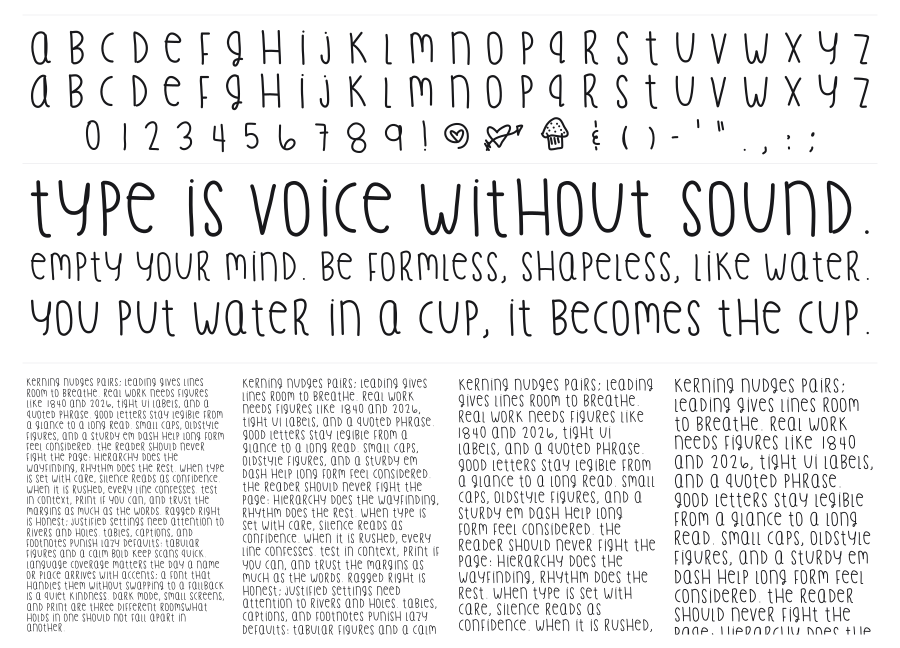 a B C D e F g H i j K l m n O P q R S t U V W X Y Z
a B C D e F g H i j K l m n O P q R S t U V W X Y Z
0 1 2 3 4 5 6 7 8 9 ! & ( ) - ' " . , : ;
type is voice without sound.
empty your mind. Be formless, shapeless, like water.
you put water in a cup, it becomes the cup.
Kerning nudges pairs; leading gives lines
room to breathe. Real work needs figures
like 1840 and 2026, tight UI labels, and a
quoted phrase. Good letters stay legible from
a glance to a long read. Small caps, oldstyle
figures, and a sturdy em dash help long form
feel considered. The reader should never
fight the page: hierarchy does the
wayfinding, rhythm does the rest. When type
is set with care, silence reads as confidence.
When it is rushed, every line confesses. Test
in context, print if you can, and trust the
margins as much as the words. Ragged right
is honest; justified settings need attention to
rivers and holes. Tables, captions, and
footnotes punish lazy defaults: tabular
figures and a calm bold keep scans quick.
Language coverage matters the day a name
or place arrives with accents; a font that
handles them without swapping to a fallback
is a quiet kindness. Dark mode, small screens,
and print are three different roomswhat
holds in one should not fall apart in
another.
Kerning nudges pairs; leading gives
lines room to breathe. Real work
needs figures like 1840 and 2026,
tight UI labels, and a quoted phrase.
Good letters stay legible from a
glance to a long read. Small caps,
oldstyle figures, and a sturdy em
dash help long form feel considered.
The reader should never fight the
page: hierarchy does the wayfinding,
rhythm does the rest. When type is
set with care, silence reads as
confidence. When it is rushed, every
line confesses. Test in context, print if
you can, and trust the margins as
much as the words. Ragged right is
honest; justified settings need
attention to rivers and holes. Tables,
captions, and footnotes punish lazy
defaults: tabular figures and a calm
Kerning nudges pairs; leading
gives lines room to breathe.
Real work needs figures like
1840 and 2026, tight UI
labels, and a quoted phrase.
Good letters stay legible from
a glance to a long read. Small
caps, oldstyle figures, and a
sturdy em dash help long
form feel considered. The
reader should never fight the
page: hierarchy does the
wayfinding, rhythm does the
rest. When type is set with
care, silence reads as
confidence. When it is rushed,
Kerning nudges pairs;
leading gives lines room
to breathe. Real work
needs figures like 1840
and 2026, tight UI labels,
and a quoted phrase.
Good letters stay legible
from a glance to a long
read. Small caps, oldstyle
figures, and a sturdy em
dash help long form feel
considered. The reader
should never fight the
page: hierarchy does the